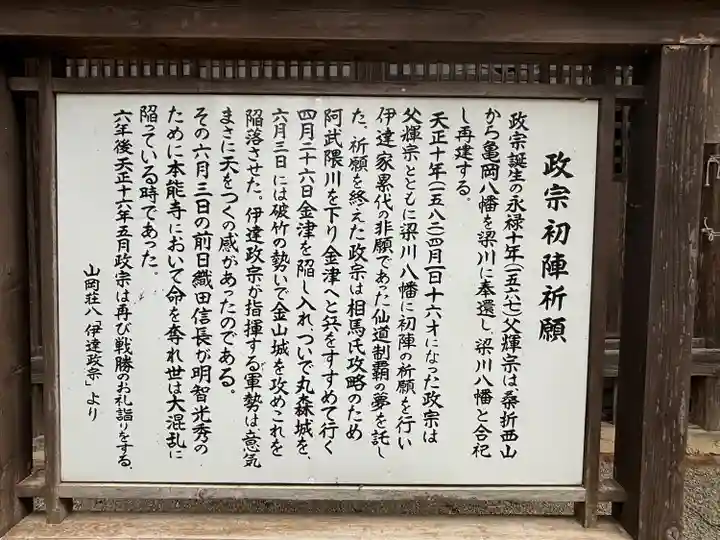 政宗初陣祈願
政宗誕生の永禄十年(一五六七)父輝宗は桑折西山
から亀岡八幡を梁川に奉還し、梁川八幡と合祀
し再建する。
天正十年(一五八二)四月一日十六才になった政宗は
父輝宗とともに梁川八幡に初陣の祈願を行い
伊達家累代の非願であった仙道制覇の夢を託し
た。祈願を終えた政宗は相馬氏攻略のため
阿武隈川を下り金津へと兵をすすめて行く
四月二十六日金津を陥し入れ、ついで丸森城を、
六月三日には破竹の勢いで金山城を攻めこれを
陥落させた。伊達政宗が指揮する軍勢は、意気
まさに天をつくの感があったのである。
その六月三日の前日織田信長が明智光秀の
ために本能寺において命を奪れ世は大混乱に
陥っている時であった。
六年後天正十六年五月政宗は再び戦勝のお礼詣りをする。
山岡荘八「伊達政宗」より